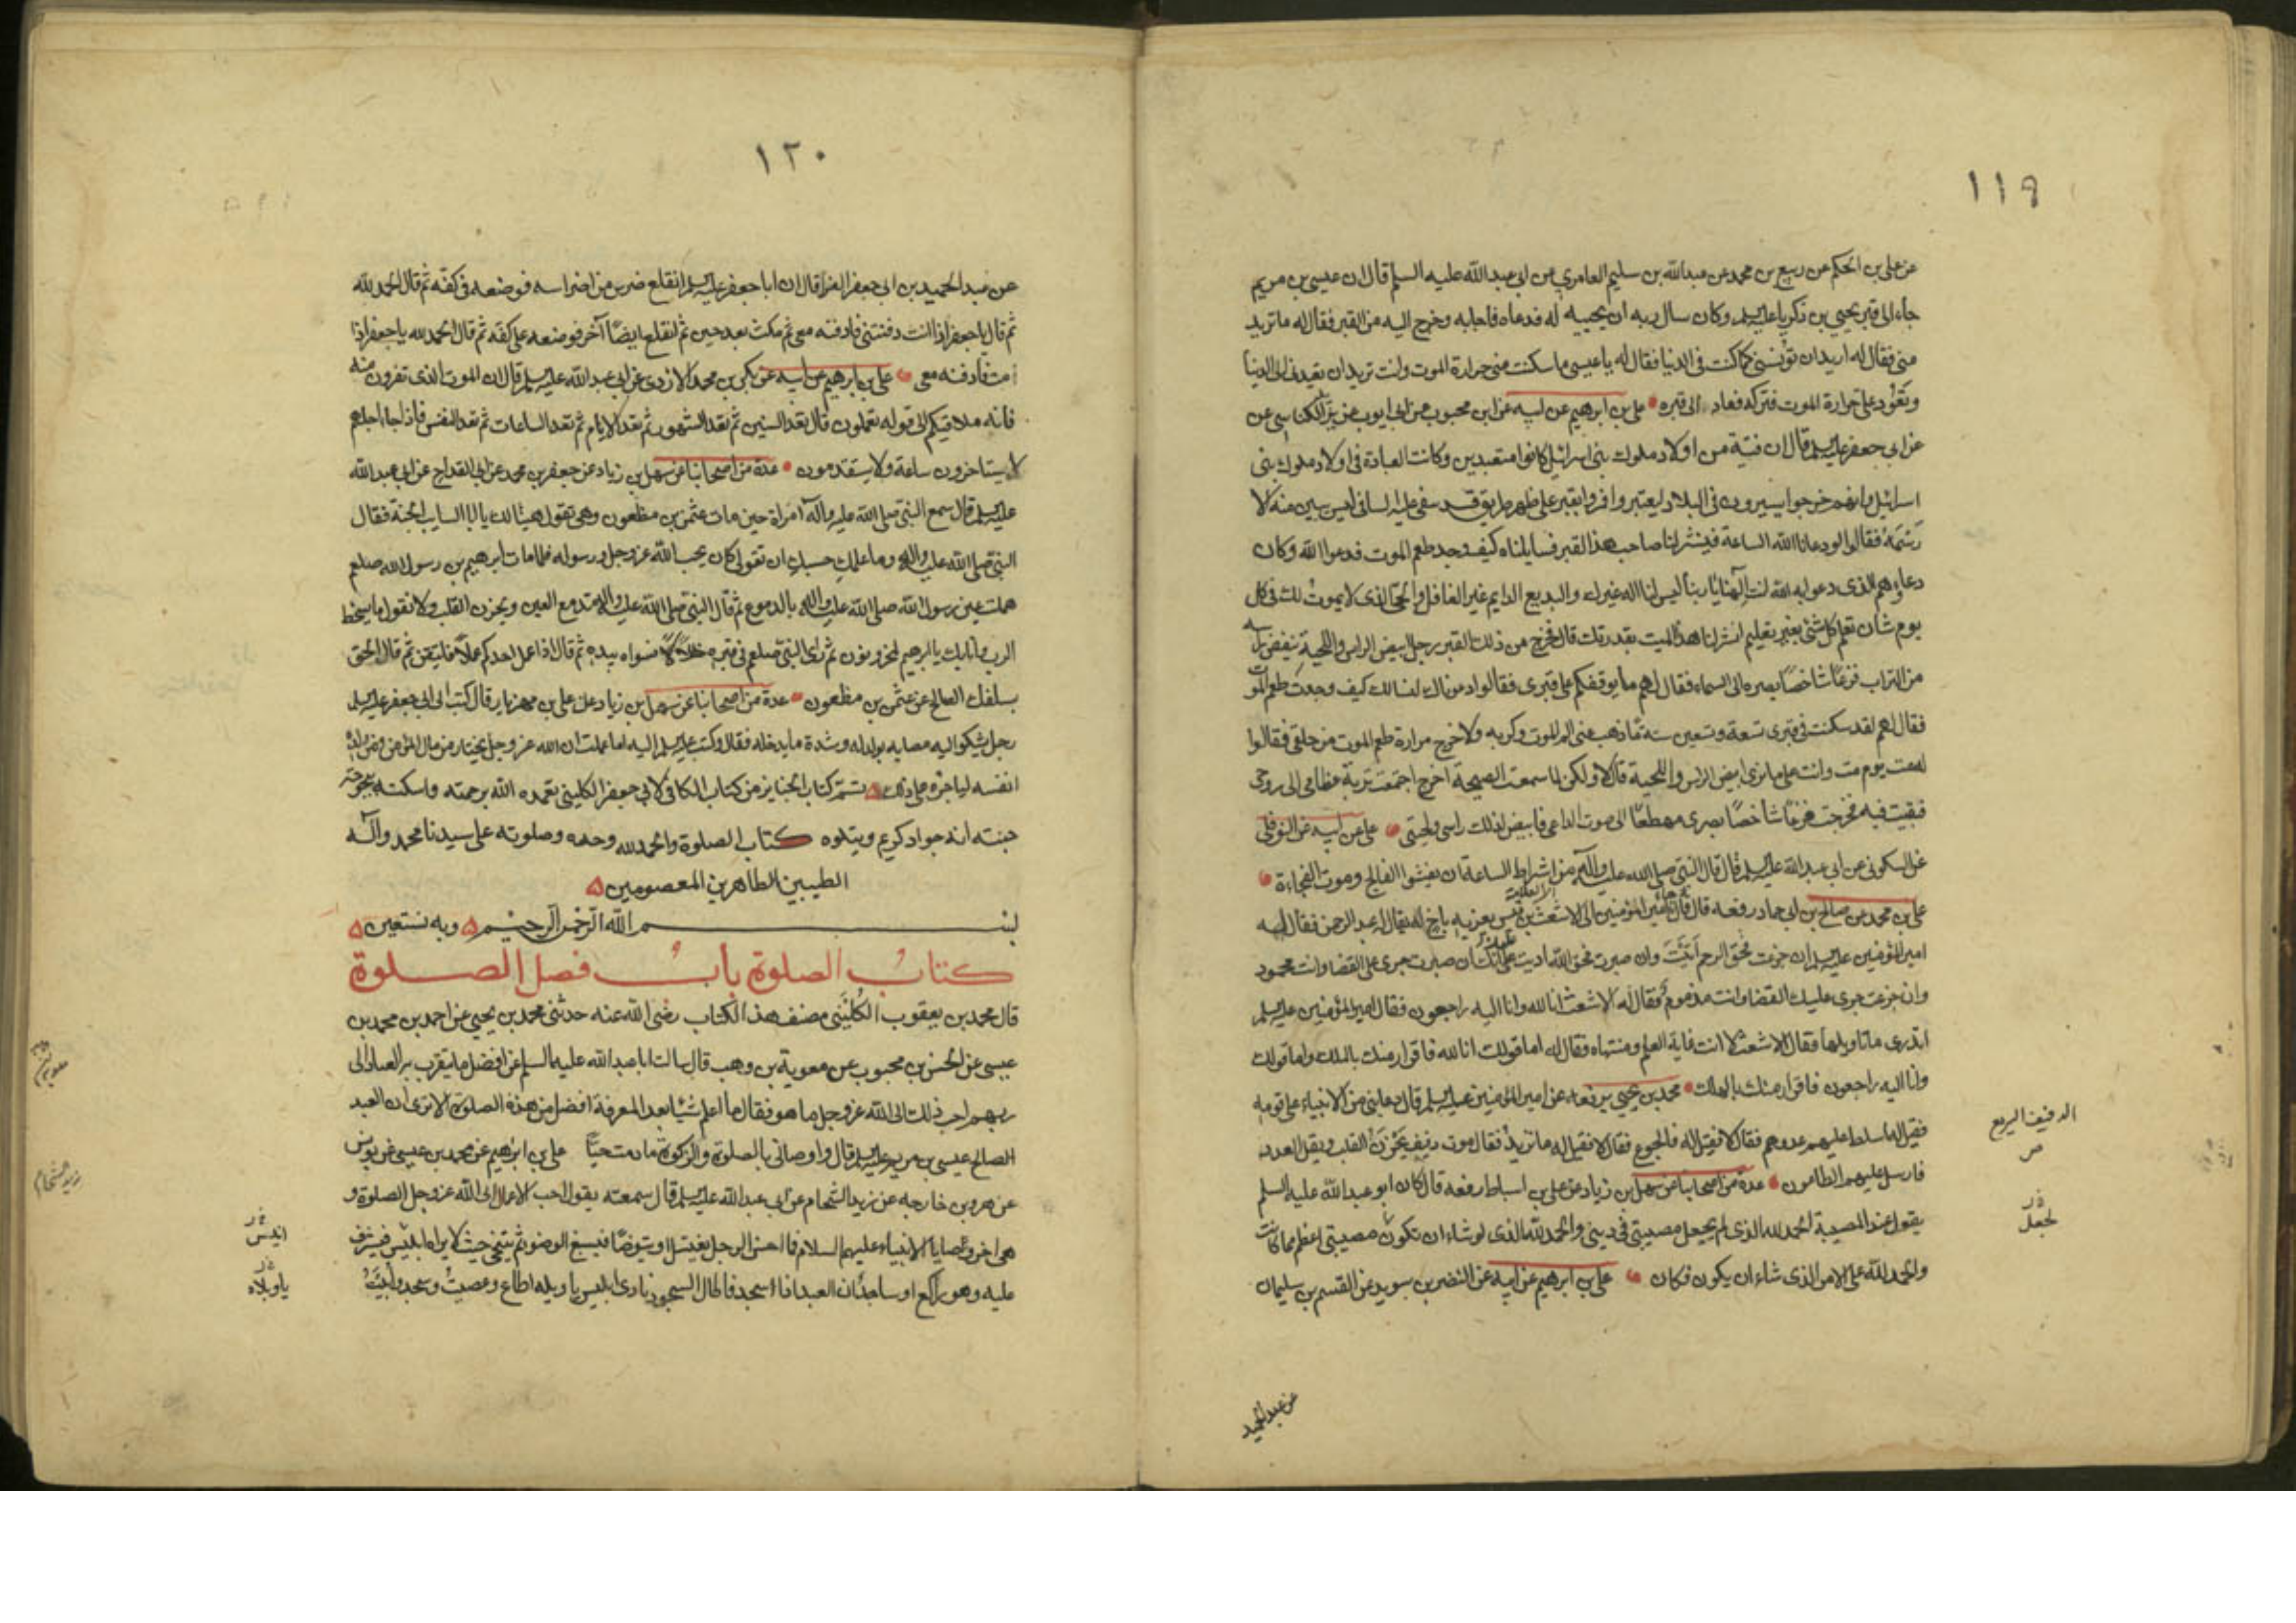 ١١٩
عن علي بن الحكم عن ربيع بن محمد عن عبدالله بن سليم العامري عن ابي عبدالله عليه السلم قال ان عيسى بن مريم
جاء الى قبر يحيى بن زكريا عليه السلم وكان سال ربه ان يحييه له فدعاه فاجابه وخرج اليه من القبر فقال له ما تريد
مني فقال له اريد ان تؤنسني كما كنت في الدنيا فقال له يا عيسى ما سكنت عني حرارة الموت وانت تريد ان تعيدني الى الدنيا
وتعود علي حرارة الموت فتركه فعاد الى قبره علي بن ابرهيم عن ابيه عن ابن محبوب عن ابي ايوب عن يزيد الكناسي عن
عن ابي جعفر عليه السلم قال ان فتية من اولاد ملوك بني اسرائيل كانوا متعبدين وكانت العبادة في اولاد ملوك بني
اسرائيل وانهم خرجوا يسيرون في البلاد ليعتبروا فمروا بقبر على ظهر طريق قد سفى عليه السافي ليس يبين منه الا
رسمه فقالوا لو دعانا الله الساعة فينشر لنا صاحب هذا القبر فسايلناه كيف وجد طعم الموت فدعوا الله وكان
دعاؤهم الذي دعوا به الله انت الهنا يا ربنا ليس لنا اله غيرك والبديع الدايم غير الغافل والحي الذي لا يموت لك في كل
يوم شان تعلم كل شئ بغير تعليم انشر لنا هذا الميت بقدرتك قال فخرج من ذلك القبر رجل ابيض الراس واللحية ينفض راسه
من التراب فزعا شاخصا بصره الى السماء فقال لهم ما يوقفكم على قبري فقالوا دعوناك لنسالك كيف وجدت طعم الموت
فقال لهم لقد سكنت في قبري تسعة وتسعين سنة ما ذهب عني الم الموت وكربه ولا خرج مرارة طعم الموت من حلقي فقالوا
له مت يوم مت وانت على ما نرى ابيض الراس واللحية قال لا ولكن لما سمعت الصيحة اخرج اجتمعت تربة عظامي الى روحي
فبقيت فيه فخرجت فزعا شاخصا بصري مهطعا الى صوت الداعي فابيض لذلك راسي ولحيتي علي عن ابيه عن النوفلي
عن السكوني عن ابي عبدالله عليه السلم قال قال النبي صلى الله عليه وآله من اشراط الساعة ان يفشوا الفالج وموت الفجاءة
علي بن محمد عن صالح بن ابي حماد رفعه قال جاء امير المؤمنين الى الاشعث بن قيس يعزيه باخ له يقال له عبد الرحمن فقال له
امير المؤمنين عليه السلم ان جزعت فحق الرحم اتيت وان صبرت فحق الله اديت على انك ان صبرت جرى عليك القضا وانت محمود
وان جزعت جرى عليك القضا وانت مذموم فقال له الاشعث انا لله وانا اليه راجعون فقال امير المؤمنين عليه السلم
اتدري ما تاويلها فقال الاشعث لا انت غاية العلم ومنتهاه فقال له اما قولك انا لله فاقرار منك بالملك واما قولك
وانا اليه راجعون فاقرار منك بالهلك محمد بن يحيى يرفعه عن امير المؤمنين عليه السلم قال دعا نبي من الانبياء على قومه
فقيل له اسلط عليهم عدوهم فقال لا فقيل له فالجوع فقال لا فقيل له ما تريد فقال موت دفيف يحزن القلب ويقل العدد
فارسل عليهم الطاعون عدة من اصحابنا عن سهل بن زياد عن علي بن اسباط رفعه قال كان ابو عبدالله عليه السلم
يقول عند المصيبة الحمد لله الذي لم يجعل مصيبتي في ديني والحمد لله الذي لو شاء ان تكون مصيبتي اعظم مما كانت
والحمد لله على الامر الذي شاء ان يكون فكان علي بن ابرهيم عن ابيه عن النضر بن سويد عن القسم بن سليمان
عن عبد الحميد
الدفيف السريع
ص
لجعل
١٢٠
عن عبد الحميد بن ابي جعفر الفرا قال ان ابا جعفر عليه السلم انقلع ضرس من اضراسه فوضعه في كفه ثم قال الحمد لله
ثم قال يا جعفر اذا انت دفنتني فادفنه معي ثم مكث بعد حين ثم انقلع ايضا آخر فوضعه على كفه ثم قال الحمد لله يا جعفر اذا
مت فادفنه معي علي بن ابرهيم عن ابيه عن بكر بن محمد الازدي عن ابي عبدالله عليه السلم قال ان الموت الذي تفرون منه
فانه ملاقيكم الى قوله تعملون قال تعد السنين ثم تعد الشهور ثم تعد الايام ثم تعد الساعات ثم تعد النفس فاذا جاء اجلهم
لا يستاخرون ساعة ولا يستقدمون عدة من اصحابنا عن سهل بن زياد عن جعفر بن محمد عن ابن القداح عن ابي عبدالله
عليه السلم قال سمع النبي صلى الله عليه وآله امراة حين مات عثمن بن مظعون وهي تقول هنيئا لك يا ابا السايب الجنة فقال
النبي صلى الله عليه وآله وما علمك حسبك ان تقولي كان يحب الله عز وجل ورسوله فلما مات ابرهيم بن رسول الله صلعم
هملت عين رسول الله صلى الله عليه وآله بالدموع ثم قال النبي صلى الله عليه وآله تدمع العين ويحزن القلب ولا نقول ما يسخط
الرب وانا بك يا ابرهيم لمحزونون ثم راى النبي صلعم في قبره خللا فسواه بيده ثم قال اذا عمل احدكم عملا فليتقن ثم قال الحق
بسلفك الصالح عثمن بن مظعون عدة من اصحابنا عن سهل بن زياد عن علي بن مهزيار قال كتب الى ابي جعفر عليه السلم
رجل يشكوا اليه مصابه بولده وشدة ما يدخله فقال وكتب عليه السلم اليه اما علمت ان الله عز وجل يختار من مال المؤمن ومن ولده
انفسه لياجره على ذلك تم كتاب الجنايز من كتاب الكافي لابي جعفر الكليني تغمده الله برحمته واسكنه بحبوحة
جنته انه جواد كريم ويتلوه كتاب الصلوة والحمد لله وحده وصلوته على سيدنا محمد وآله
الطيبين الطاهرين المعصومين
بسم الله الرحمن الرحيم وبه نستعين
كتاب الصلوة باب فضل الصلوة
قال محمد بن يعقوب الكليني مصنف هذا الكتاب رضي الله عنه حدثني محمد بن يحيى عن احمد بن محمد بن
عيسى عن الحسن بن محبوب عن معوية بن وهب قال سالت ابا عبدالله عليه السلم عن افضل ما يتقرب به العباد الى
ربهم واحب ذلك الى الله عز وجل ما هو فقال ما اعلم شيئا بعد المعرفة افضل من هذه الصلوة الا ترى ان العبد
الصالح عيسى بن مريم عليه السلم قال واوصاني بالصلوة والزكوة ما دمت حيا علي بن ابرهيم عن محمد بن عيسى عن يونس
عن هرون بن خارجه عن زيد الشحام عن ابي عبدالله عليه السلم قال سمعته يقول احب الاعمال الى الله عز وجل الصلوة و
هي اخر وصايا الانبياء عليهم السلام فما احسن الرجل يغتسل او يتوضا فيسبغ الوضوء ثم يتنحى حيث لا يراه ابليس فيشرف
عليه وهو راكع او ساجد ان العبد اذا اسجد فاطال السجود نادى ابليس يا ويله اطاع وعصيت وسجد وابيت
انيس
يا ويلاه
زيد الشحام